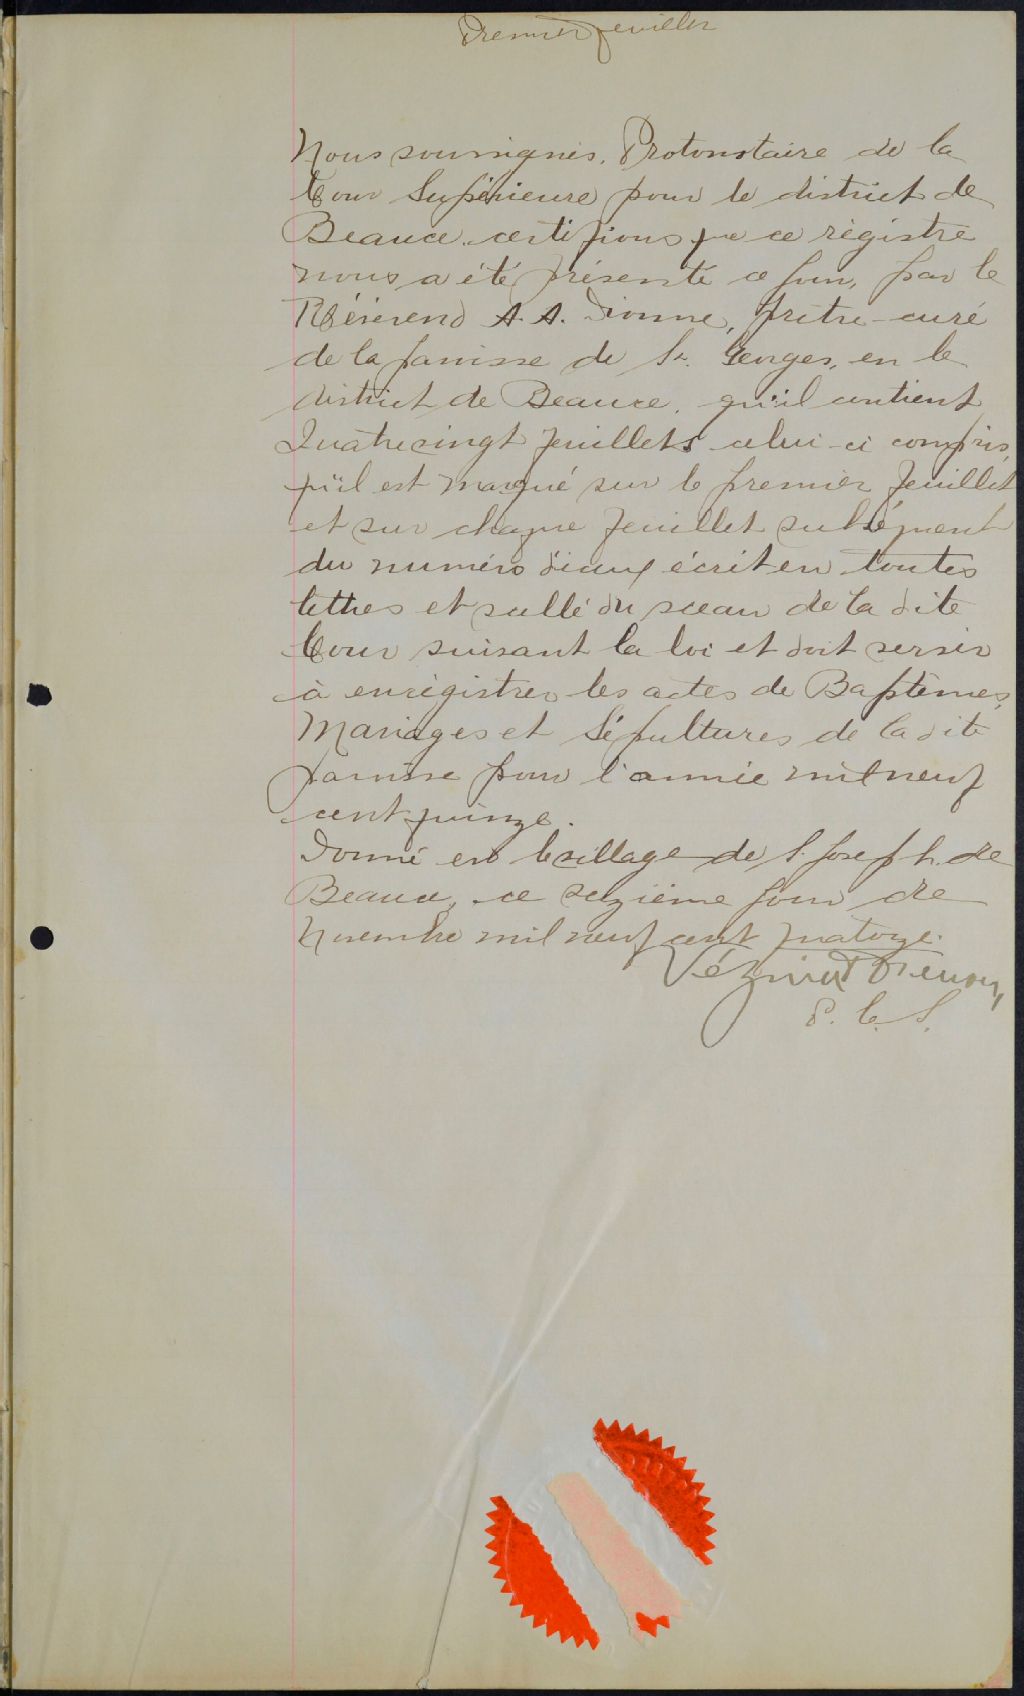 Premier feuillet
Nous soussignés, Protonotaire de la
Cour Supérieure pour le district de
Beauce, certifions que ce régistre
nous a été présenté ce jour, par le
Révérend A. A. Dionne, prêtre-curé
de la paroisse de St. Georges, en le
district de Beauce, qu'il contient
Quatrevingt feuillets celui-ci compris,
qu'il est marqué sur le premier feuillet
et sur chaque feuillet subséquent
du numéro d'iceux écrit en toutes
lettres et scellé du sceau de la dite
Cour suivant la loi et doit servir
à enrégistrer les actes de Baptêmes,
Mariages et Sépultures de la dite
paroisse pour l'année mil neuf
cent quinze.
Donné en le village de S. Joseph de
Beauce, ce seizième jour de
Novembre mil neuf cent quatorze.
Vézina &
P. C. S.